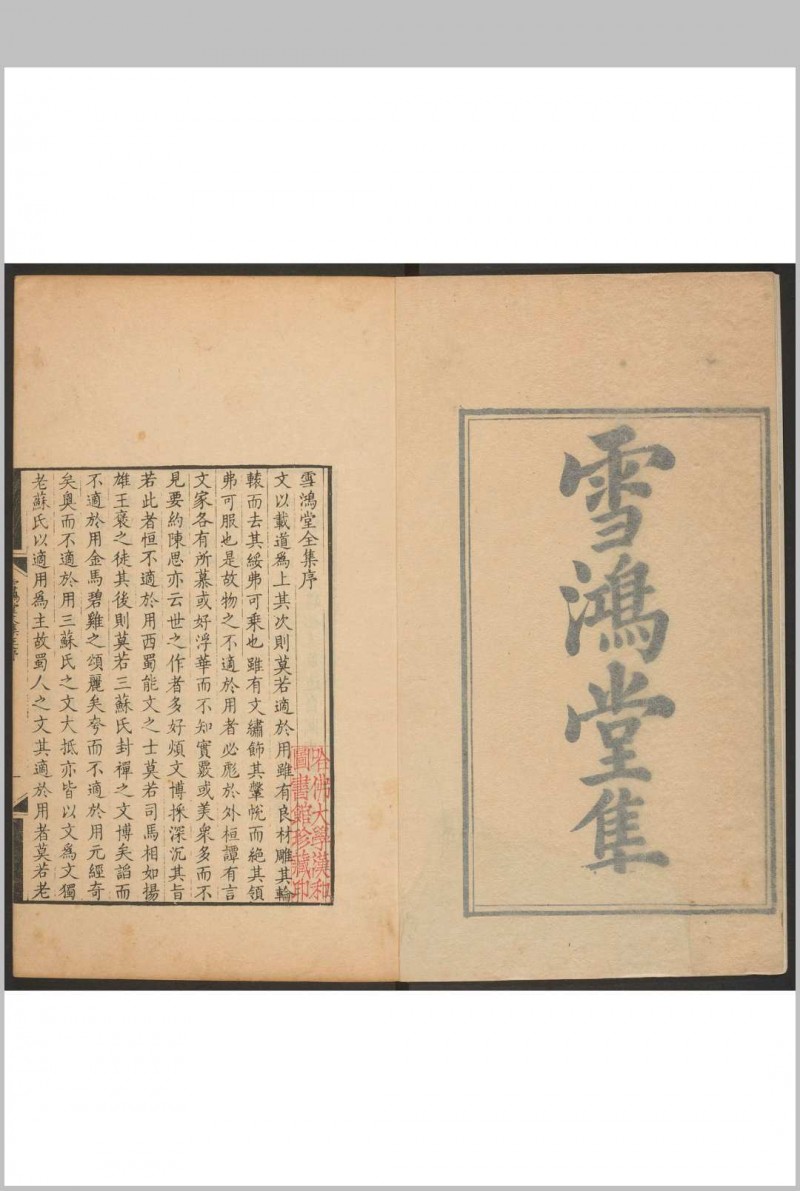 雪鴻堂集
雪鴻堂全集序
文以載道爲上其次則莫若適於用雖有良材雕其輪
轅而去其綏弗可乘也雖有文繡飾其鞶帨而絶其領
弗可服也是故物之不適於用者必彪於外桓譚有言
文家各有所慕或好浮華而不知實覈或美衆多而不
見要約陳思亦云世之作者多好煩文博採深沉其旨
若此者恒不適於用西蜀能文之士莫若司馬相如揚
雄王褒之徒其後則莫若三蘇氏封禪之文博矣謟而
不適於用金馬碧雞之頌麗矣夸而不適於用元經奇
矣奥而不適於用三蘇氏之文大抵亦皆以文爲文獨
老蘇氏以適用爲主故蜀人之文其適於用者莫若老
哈佛大學漢和
圖書館珍藏印